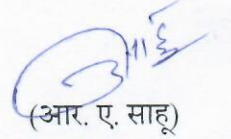 (आर. ए. साहू)